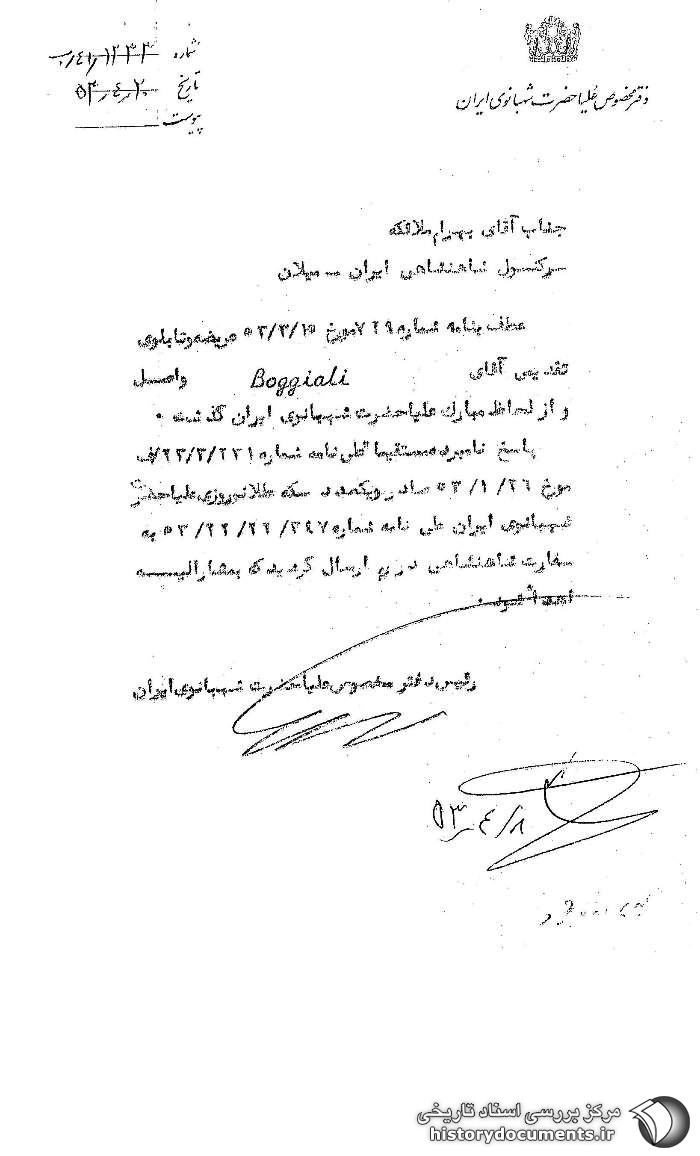 دفتر مخصوص علیاحضرت شهبانوی ایران
شماره
تاریخ ۵۳-۴-۲۰
پیوست
جناب آقای بهرام ملائکه
سرکنسول شاهنشاهی ایران - میلان
عطف بنامه شماره ۷۲۹ مورخ ۵۳/۳/۱۵ عریضه و تابلوی
تقدیمی آقای Boggiali واصل
و از لحاظ مبارک علیاحضرت شهبانوی ایران گذشت .
پاسخ نامبرده مستقیما" طی نامه شماره
مورخ ۵۳/۱/۲۶ صادر و یکعدد سکه طلا نوروزی علیاحضرت
شهبانوی ایران طی نامه شماره به
سفارت شاهنشاهی در رم ارسال گردید که بمشارالیه
اهدا شود .
رئیس دفتر مخصوص علیاحضرت شهبانوی ایران
۵۳-۴/۸
مرکز بررسی اسناد تاریخی
historydocuments.ir